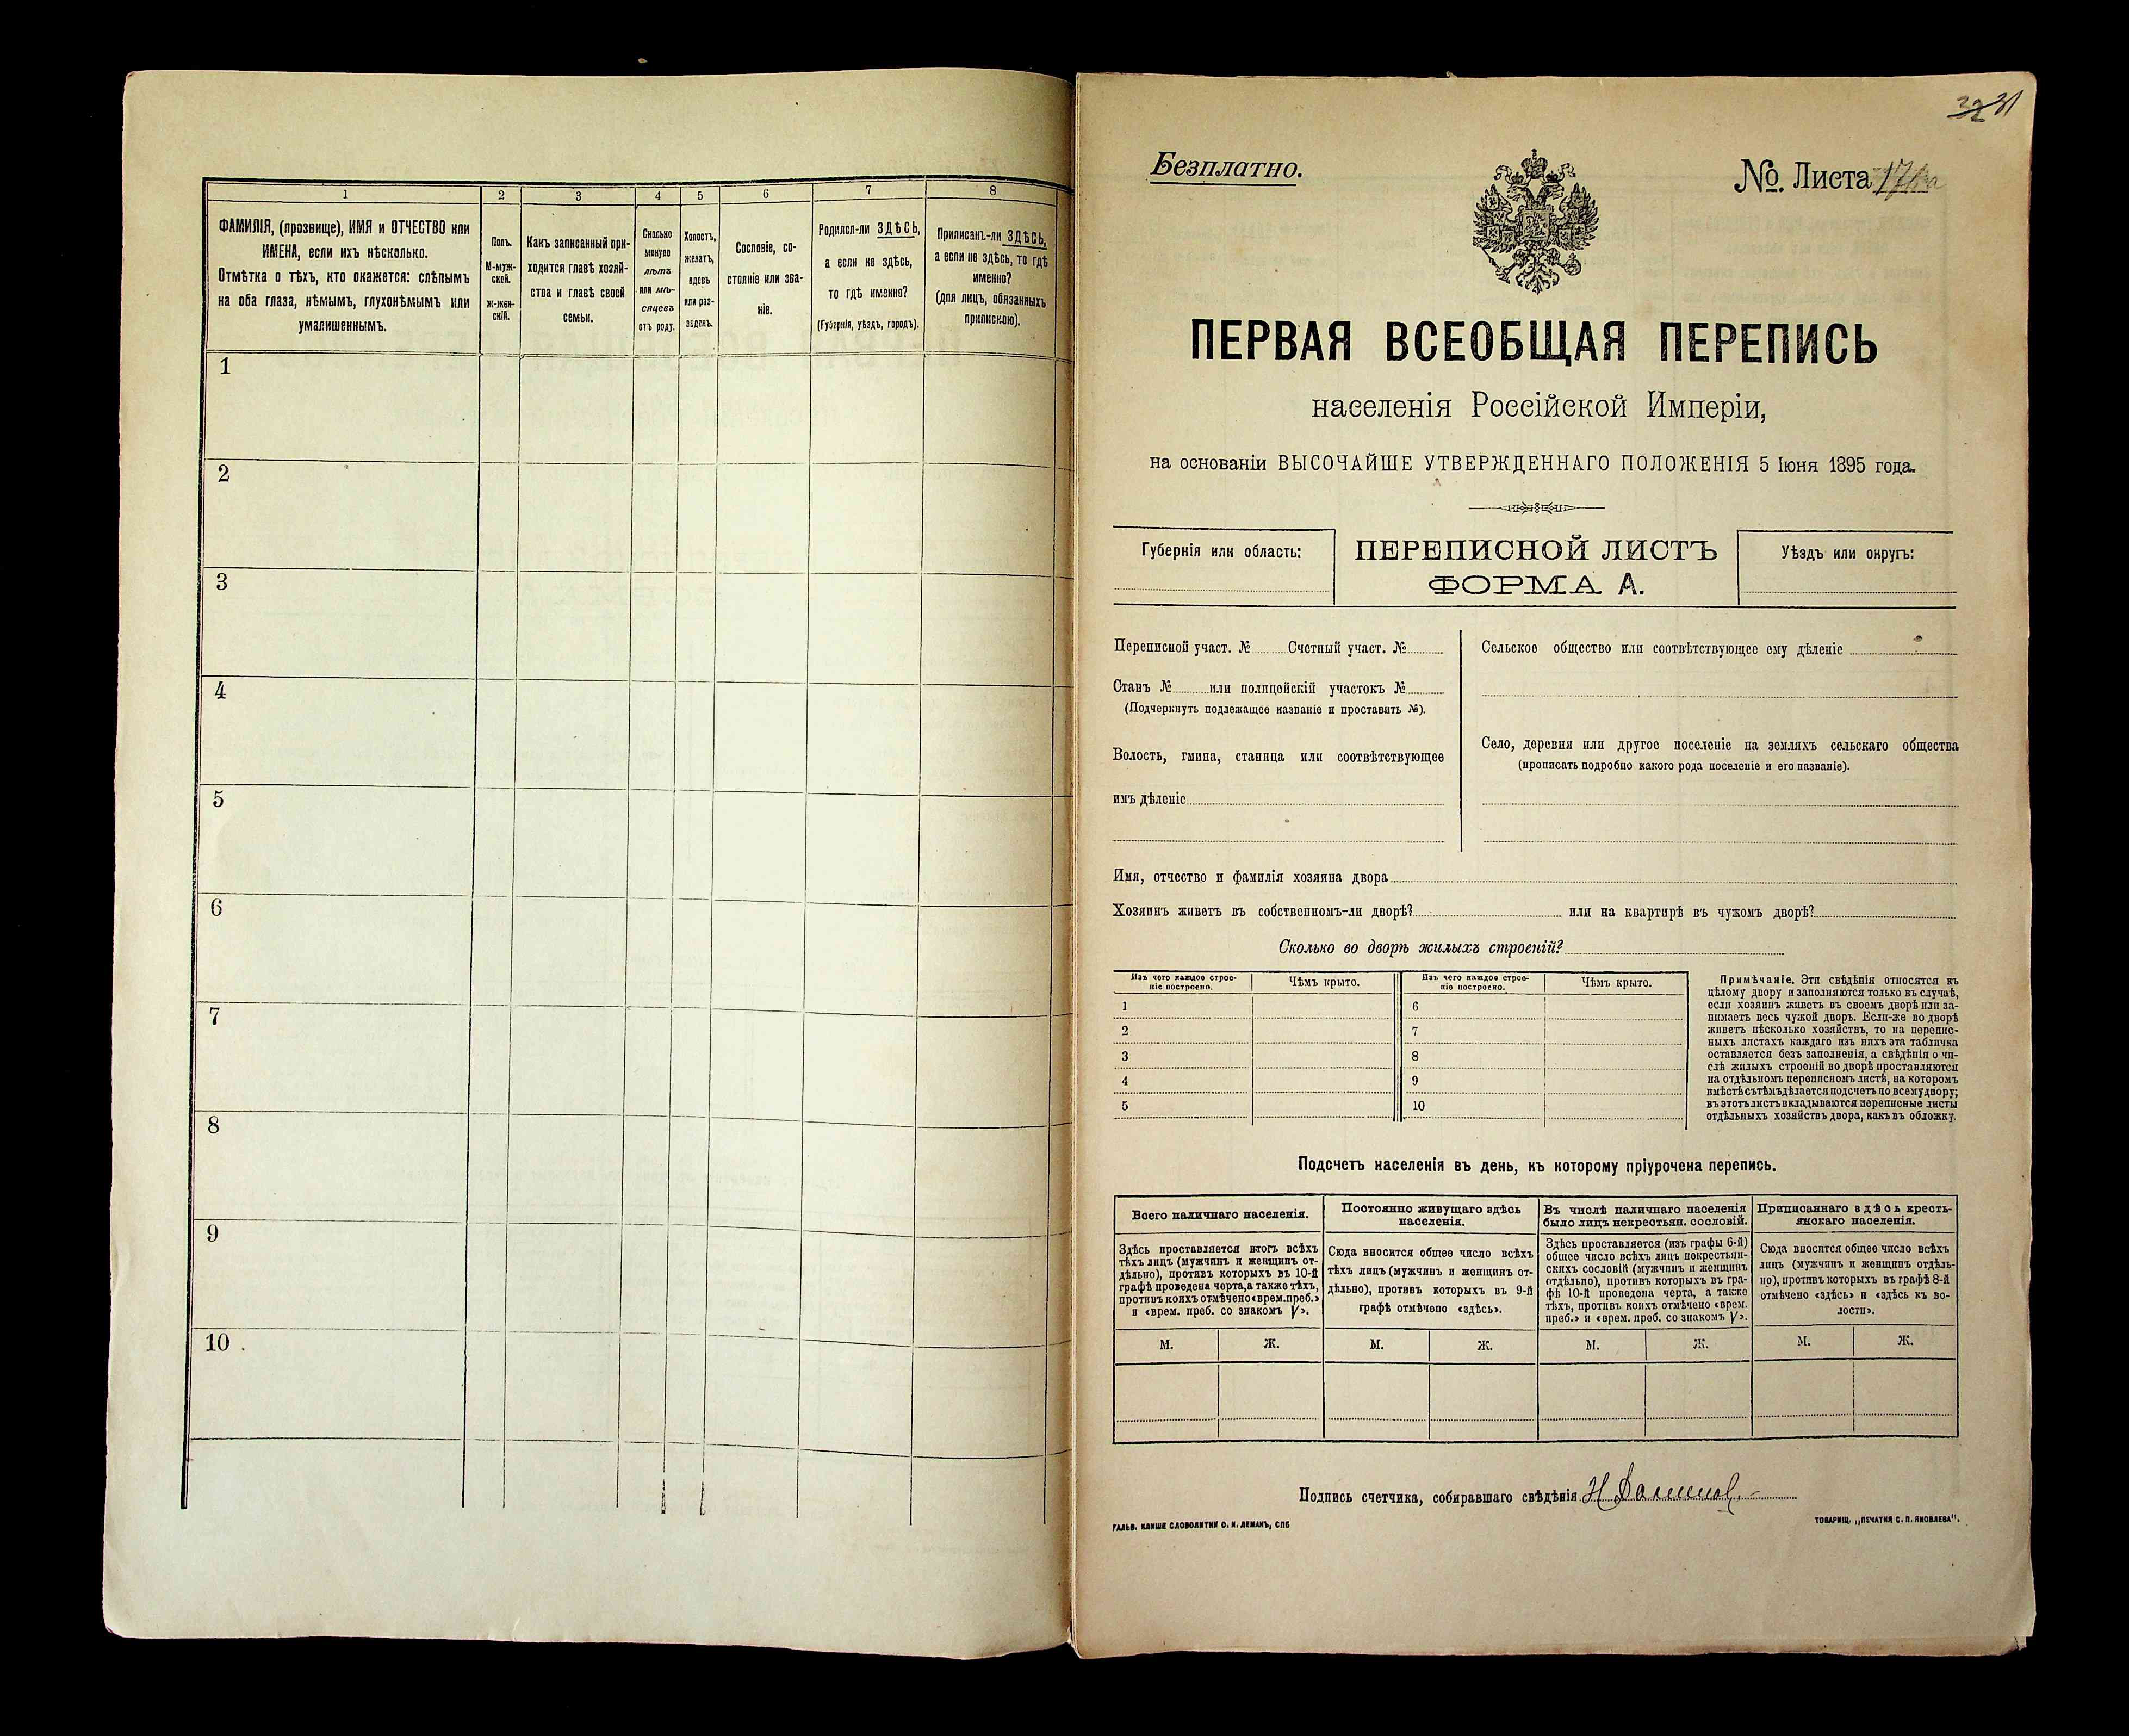 1
2
3
4
5
6
7
8
ФАМИЛІЯ, (прозвище), ИМЯ и ОТЧЕСТВО или
ИМЕНА, если ихъ нѣсколько.
Отмѣтка о тѣхъ, кто окажется: слѣпымъ
на оба глаза, нѣмымъ, глухонѣмымъ или
умалишеннымъ.
Полъ.
М-муж-
ской.
Ж-жен-
скій.
Какъ записанный при-
ходится главѣ хозяй-
ства и главѣ своей
семьи.
Сколько
минуло
лѣтъ
или мѣ-
сяцевъ
отъ роду.
Холостъ,
женатъ,
вдовъ
или раз-
веденъ.
Сословіе, со-
стояніе или зва-
ніе.
Родился-ли ЗДѢСЬ,
а если не здѣсь,
то гдѣ именно?
(Губернія, уѣздъ, городъ).
Приписанъ-ли ЗДѢСЬ,
а если не здѣсь, то гдѣ
именно?
(для лицъ, обязанныхъ
припискою).
1
2
3
4
5
6
7
8
9
10
32 31
Безплатно.
№. Листа
ПЕРВАЯ ВСЕОБЩАЯ ПЕРЕПИСЬ
населенія Россійской Имперіи,
на основаніи ВЫСОЧАЙШЕ УТВЕРЖДЕННАГО ПОЛОЖЕНІЯ 5 Іюня 1895 года.
Губернія или область:
ПЕРЕПИСНОЙ ЛИСТЪ
ФОРМА А.
Уѣздъ или округъ:
Переписной участ. № Счетный участ. №
Станъ № или полицейскій участокъ №
(Подчеркнуть подлежащее названіе и проставить №).
Волость, гмина, станица или соотвѣтствующее
имъ дѣленіе
Сельское общество или соотвѣтствующее ему дѣленіе
Село, деревня или другое поселеніе на земляхъ сельскаго общества
(прописать подробно какого рода поселеніе и его названіе).
Имя, отчество и фамилія хозяина двора
Хозяинъ живетъ въ собственномъ-ли дворѣ? или на квартирѣ въ чужомъ дворѣ?
Сколько во дворѣ жилыхъ строеній?
Изъ чего каждое строе-
ніе построено.
Чѣмъ крыто.
Изъ чего каждое строе-
ніе построено.
Чѣмъ крыто.
1
2
3
4
5
6
7
8
9
10
Примѣчаніе. Эти свѣдѣнія относятся къ
цѣлому двору и заполняются только въ случаѣ,
если хозяинъ живетъ въ своемъ дворѣ или за-
нимаетъ весь чужой дворъ. Если-же во дворѣ
живетъ нѣсколько хозяйствъ, то на перепис-
ныхъ листахъ каждаго изъ нихъ эта табличка
оставляется безъ заполненія, а свѣдѣнія о чи-
слѣ жилыхъ строеній во дворѣ проставляются
на отдѣльномъ переписномъ листѣ, на которомъ
вмѣстѣ съ тѣмъ дѣлается подсчетъ по всему двору;
въ этотъ листъ вкладываются переписные листы
отдѣльныхъ хозяйствъ двора, какъ въ обложку.
Подсчетъ населенія въ день, къ которому пріурочена перепись.
Всего наличнаго населенія.
Здѣсь проставляется итогъ всѣхъ
тѣхъ лицъ (мужчинъ и женщинъ от-
дѣльно), противъ которыхъ въ 10-й
графѣ проведена черта, а также тѣхъ,
противъ коихъ отмѣчено «врем. преб.»
и «врем. преб. со знакомъ V».
М. Ж.
Постоянно живущаго здѣсь
населенія.
Сюда вносится общее число всѣхъ
тѣхъ лицъ (мужчинъ и женщинъ от-
дѣльно), противъ которыхъ въ 9-й
графѣ отмѣчено «здѣсь».
М. Ж.
Въ числѣ наличнаго населенія
было лицъ некрестьян. сословій.
Здѣсь проставляется (изъ графы 6-й)
общее число всѣхъ лицъ некрестьян-
скихъ сословій (мужчинъ и женщинъ
отдѣльно), противъ которыхъ въ гра-
фѣ 10-й проведена черта, а также
тѣхъ, противъ коихъ отмѣчено «врем.
преб.» и «врем. преб. со знакомъ V».
М. Ж.
Приписаннаго здѣсь кресть-
янскаго населенія.
Сюда вносится общее число всѣхъ
лицъ (мужчинъ и женщинъ отдѣль-
но), противъ которыхъ въ графѣ 8-й
отмѣчено «здѣсь» и «здѣсь къ во-
лости».
М. Ж.
Подпись счетчика, собиравшаго свѣдѣнія
ГАЛЬВ. КЛИШЕ СЛОВОЛИТНИ О. И. ЛЕМАНЪ, СПБ
ТОВАРИЩ. „ПЕЧАТНЯ С. П. ЯКОВЛЕВА".